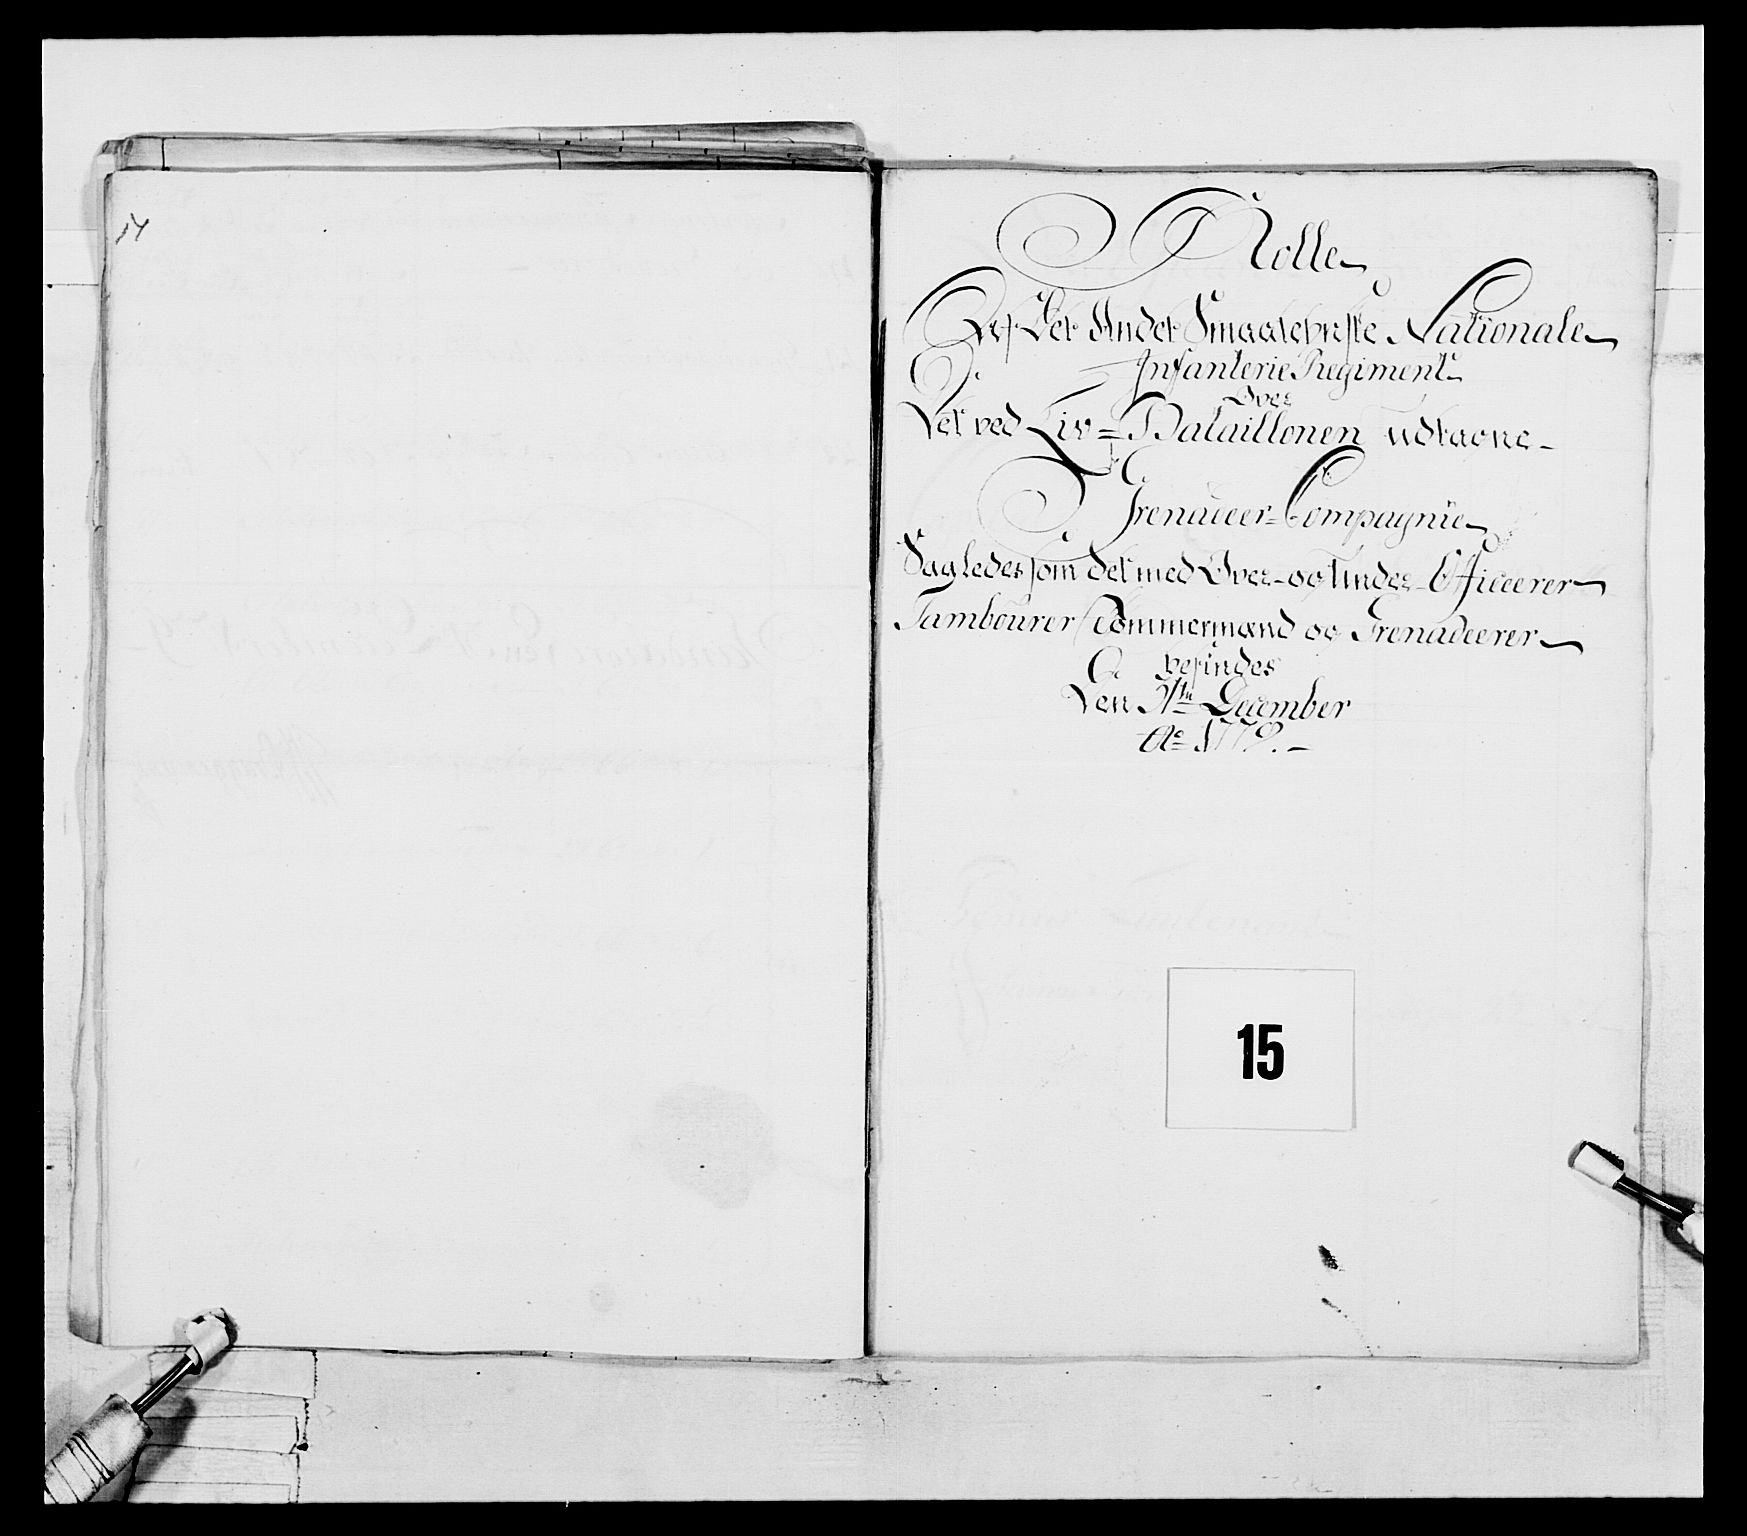 14
Rolle
Af Det Andet Smaalehnske Nationale
Infanterie Regiment
Over
Det ved Liv=Bataillonen udtagne
Grenadeer=Compagnie
Saaledes som det med Over- og Under-Officeerer
Tambourer Tömmermænd og Grenadeerer
befindes
Den December
Ao 1779.
15